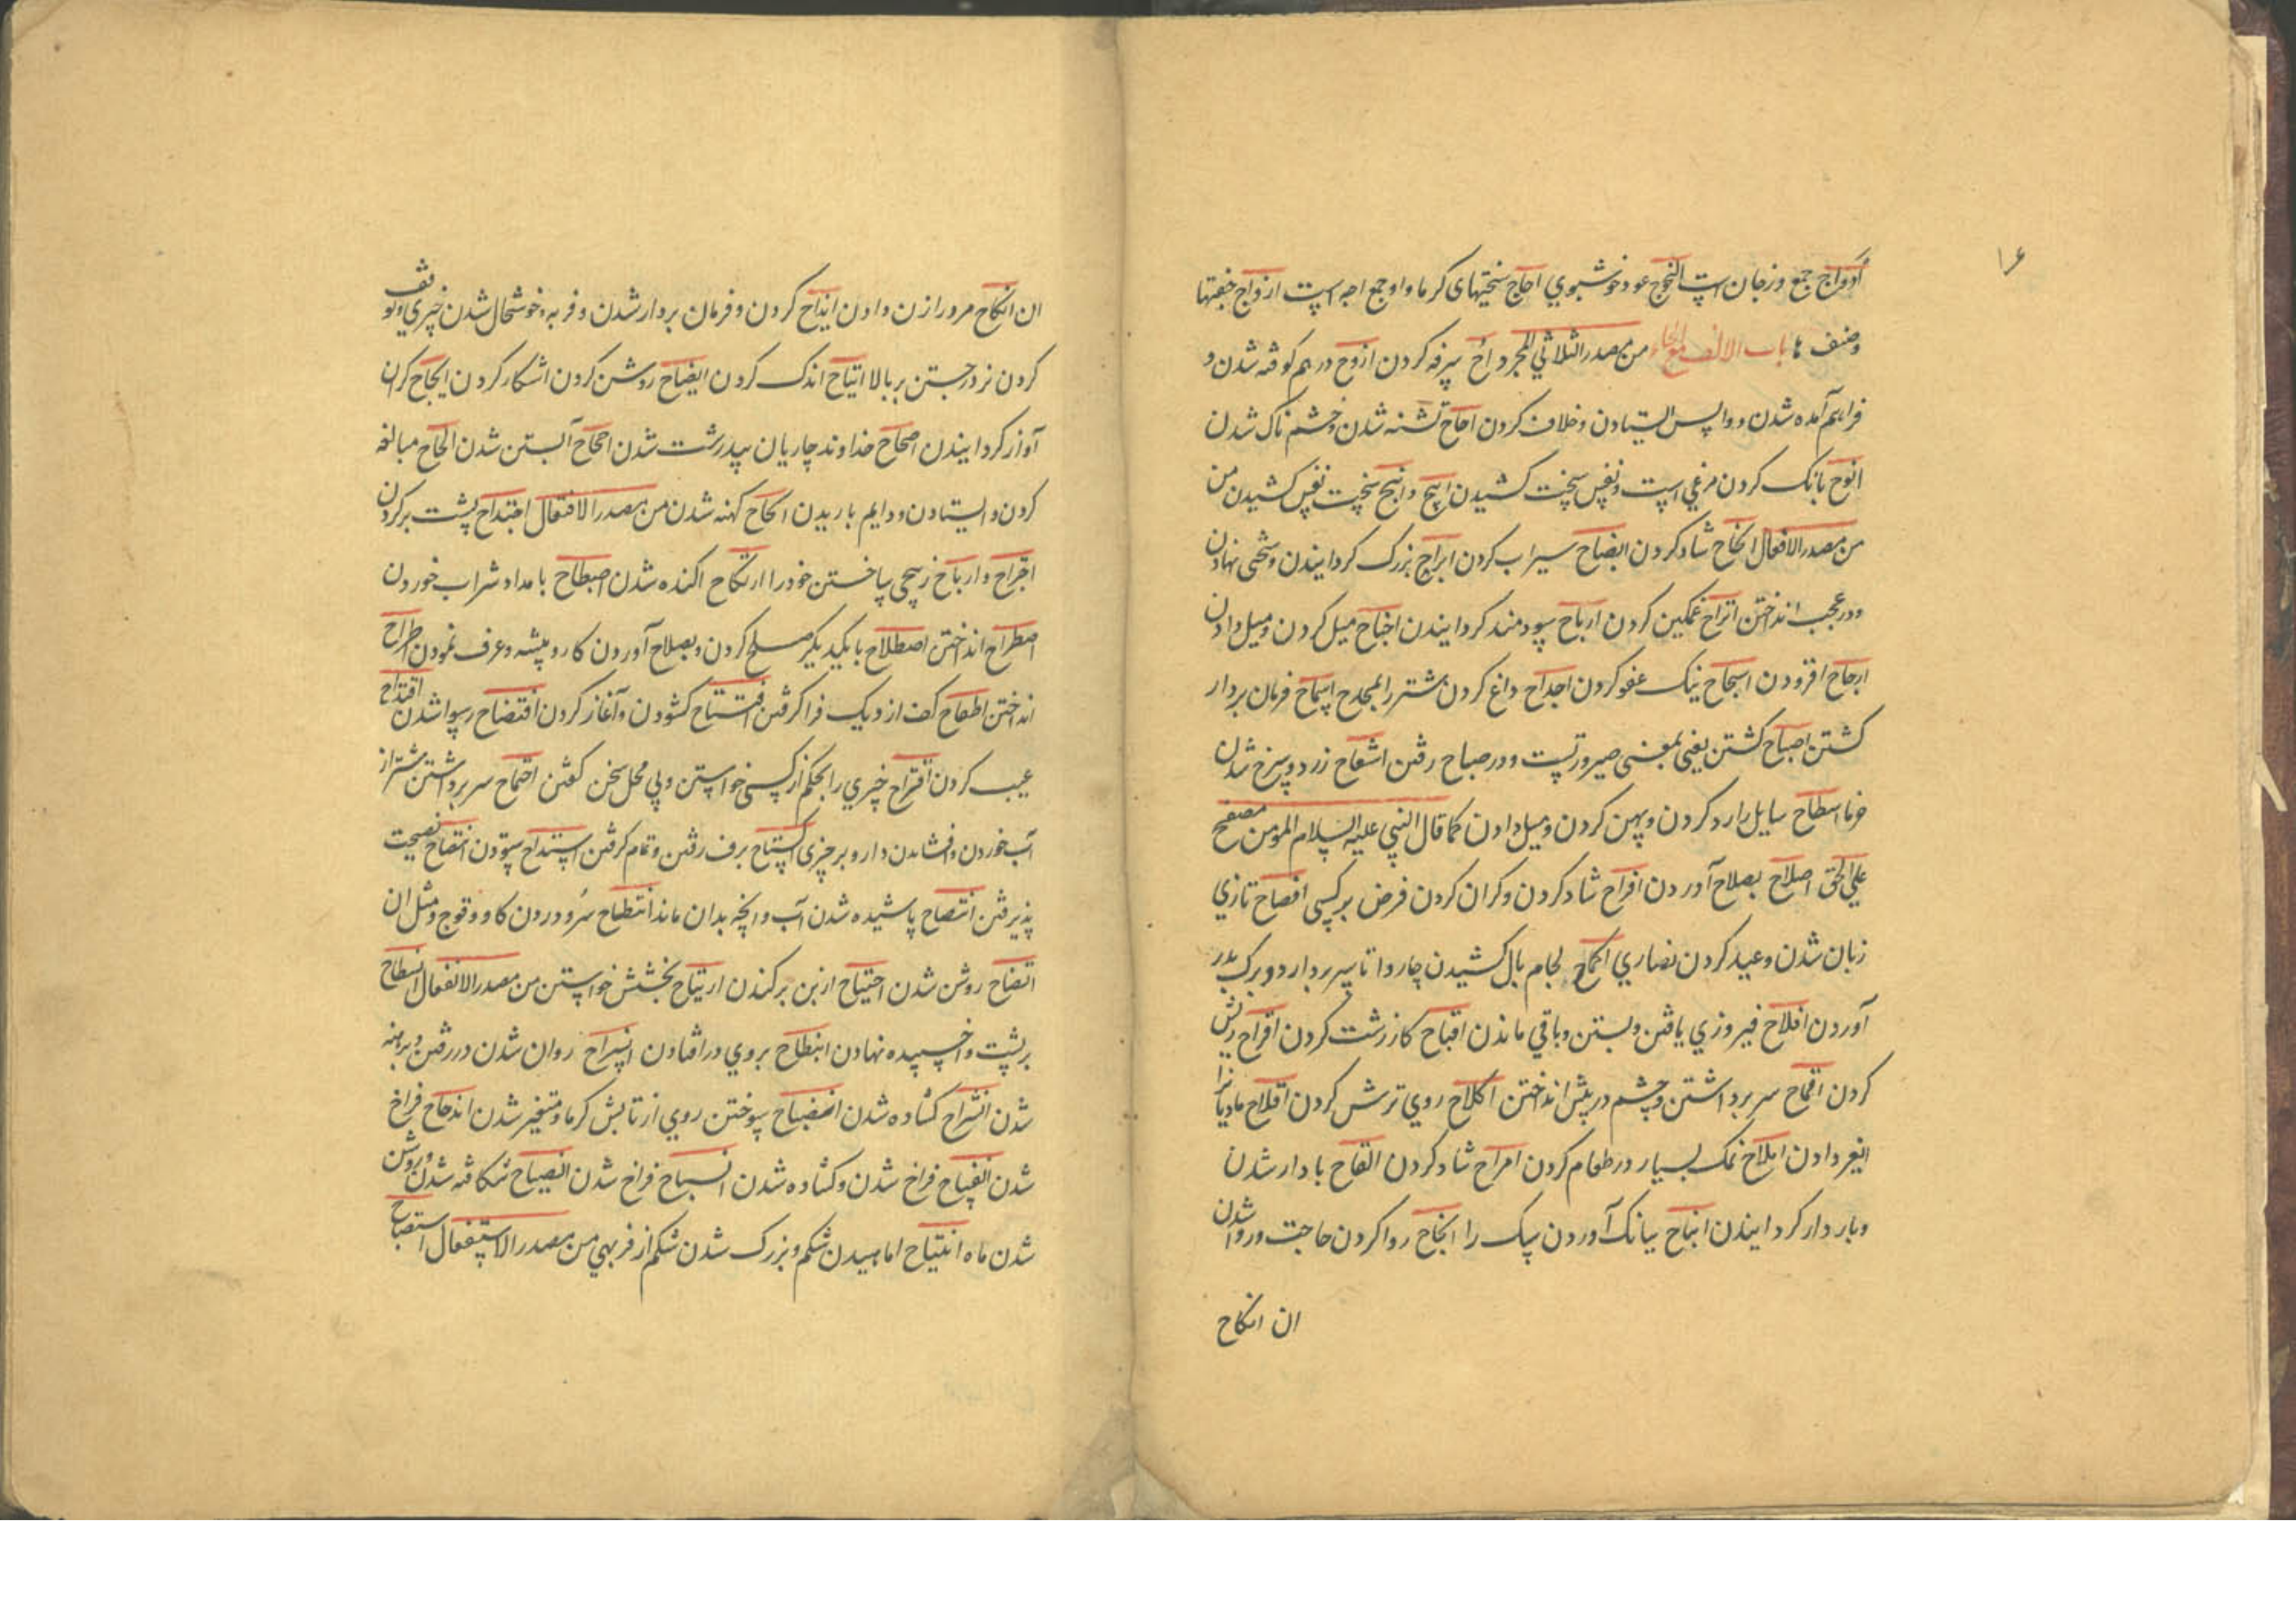 ۱۶
ازواج جمع وزجان است النجوج عود خوشبوی اجاج سختیهای گرما و او جمع اجه است ازواج جفتها
وصنف ها باب الالف مع الحاء من مصدر الثلاثی المجرد اح سرفه کردن ازوح درهم کوفته شدن و
فراهم آمده شدن و واپس ایستادن و خلاف کردن احاح تشنه شدن و خشم ناک شدن
انوح بانک کردن مرغی است و نفس سخت کشیدن انیح و انح سخت نفس کشیدن من
من مصدر الافعال شاد کردن انضاح سیراب کردن ابراح بزرک کردانیدن و سختی نهادن
و در عجب انداختن اتراح غمکین کردن ارباح سودمند کردانیدن اجناح میل کردن و میل دادن
ارجاح افزودن اسجاح نیک عفو کردن اجداح داغ کردن شتر را بمجدح اسماح فرمان بردار
کشتن اصباح کشتن یعنی بمعنی صیرورتست و در صباح رفتن اشقاح زرد و سرخ شدن
خرما سایل را رد کردن و پهن کردن و میل دادن کما قال النبی علیه السلام المومن مصفح
علی الحق اصلاح بصلاح آوردن افراح شاد کردن و کران کردن قرض بر کسی افصاح تازی
زبان شدن و عید کردن نصاری اکماح لجام بال کشیدن چاروا تا سر بردارد و برک بدر
آوردن افلاح فیروزی یافتن و بستن و باقی ماندن اقباح کار زشت کردن اقراح ریش
کردن اقماح سر برداشتن و چشم در پیش انداختن اکلاح روی ترش کردن مادیانرا
دادن املاح نمک بسیار در طعام کردن امراح شاد کردن القاح باردار شدن
و باردار کردانیدن انباح ببانک آوردن سک را انجاح روا کردن حاجت و روا شدن
ان انکاح
ان انکاح مرد را زن دادن کردن و فرمان بردار شدن و فربه و خوشحال شدن
کردن نر و برجستن بر بالا اتیاح اندک کردن ایضاح روشن کردن اشکار کردن
آواز کردانیدن اصحاح خداوند چارپایان تندرست شدن اجحاح آبستن شدن الحاح مبالغه
کردن و ایستادن و دایم باریدن امحاح کهنه شدن من مصدر الافتعال اجتداح پشت بر کردن
اجتراح و ارتباح ساختن خود را ارتکاح اکنده شدن اصطباح بامداد شراب خوردن
اصطراح انداختن اصطلاح با یکدیکر صلح کردن و بصلاح آوردن کار و پیشه و عرف نمودن اطراح
انداختن اطفاح کف از دیک فرا کرفتن افتتاح کشودن و آغاز کردن افتضاح رسوا شدن اقتداح
عیب کردن اقتراح چیزی را بحکم از کسی خواستن و بی محل سخن کفتن اقتماح سر برداشتن شتر از
آب خوردن و افشاندن دارو بر چیزی اکتساح برف رفتن و تمام کرفتن امتداح ستودن انتصاح نصیحت
پذیرفتن انتضاح پاشیده شدن آب و انچه بدان ماند انتطاح سرو در زدن کاو و قوچ و مثل ان
اتضاح روشن شدن اجتیاح از بن برکندن ارتیاح بخشش خواستن من مصدر الانفعال انسطاح
بر پشت و اخسپیده نهادن انبطاح بروی در افتادن انسراح روان شدن در رفتن و برهنه
شدن انشراح کشاده شدن انضباح سوختن روی از تابش کرما و متغیر شدن اندحاح فراخ
شدن انفساح فراخ شدن و کشاده شدن انسیاح فراخ شدن انصیاح شکافته شدن و روشن
شدن ماه انتیاح اماهیدن شکم و بزرک شدن شکم از فربهی من مصدر الاستفعال استصباح